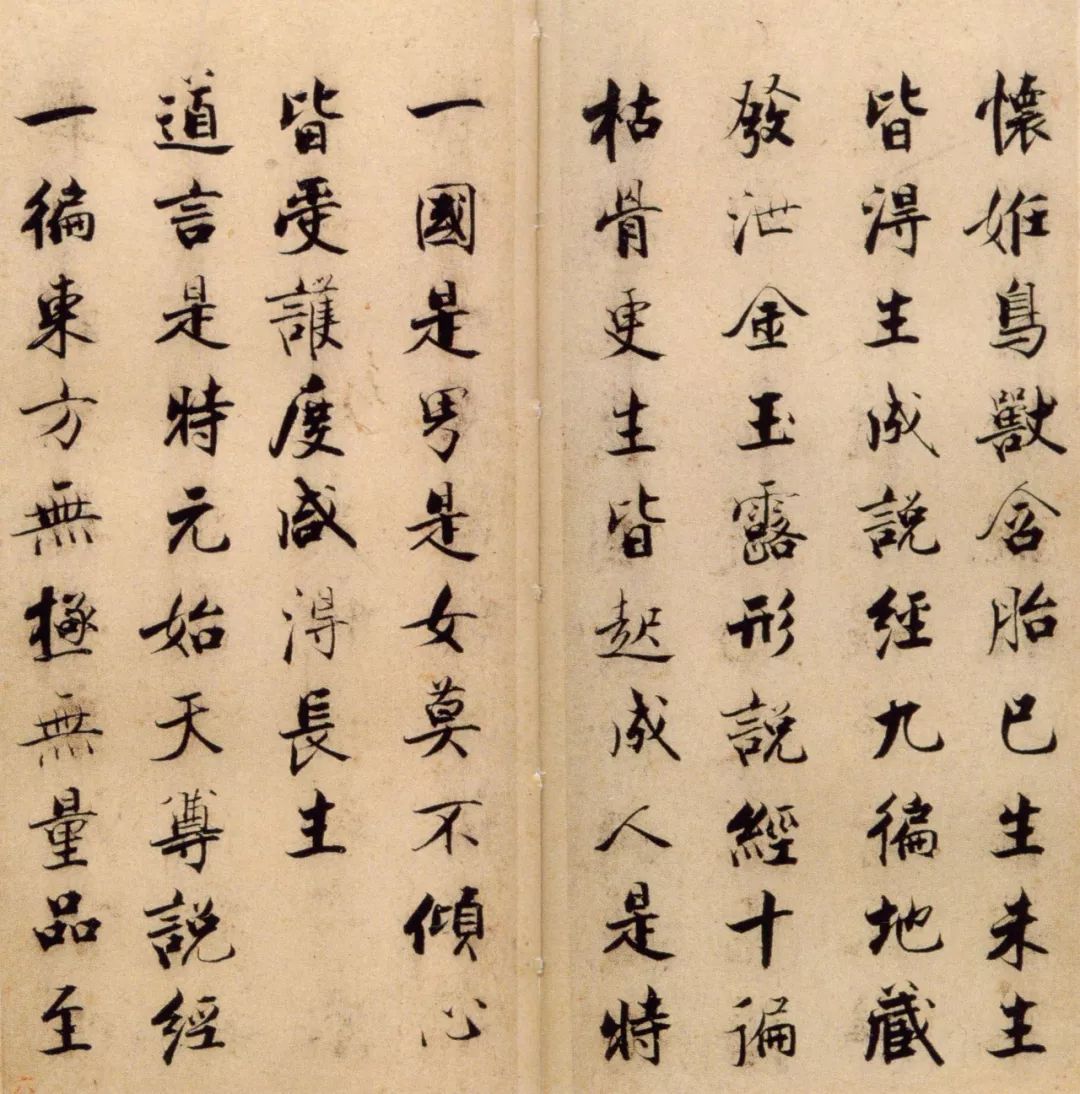 懷妊鳥獸含胎已生未生
皆得生成說經九徧地藏
發泄金玉露形說經十遍
枯骨更生皆起成人是時
一國是男是女莫不傾心
皆受護度咸得長生
道言是時元始天尊說經
一徧東方無極無量品至